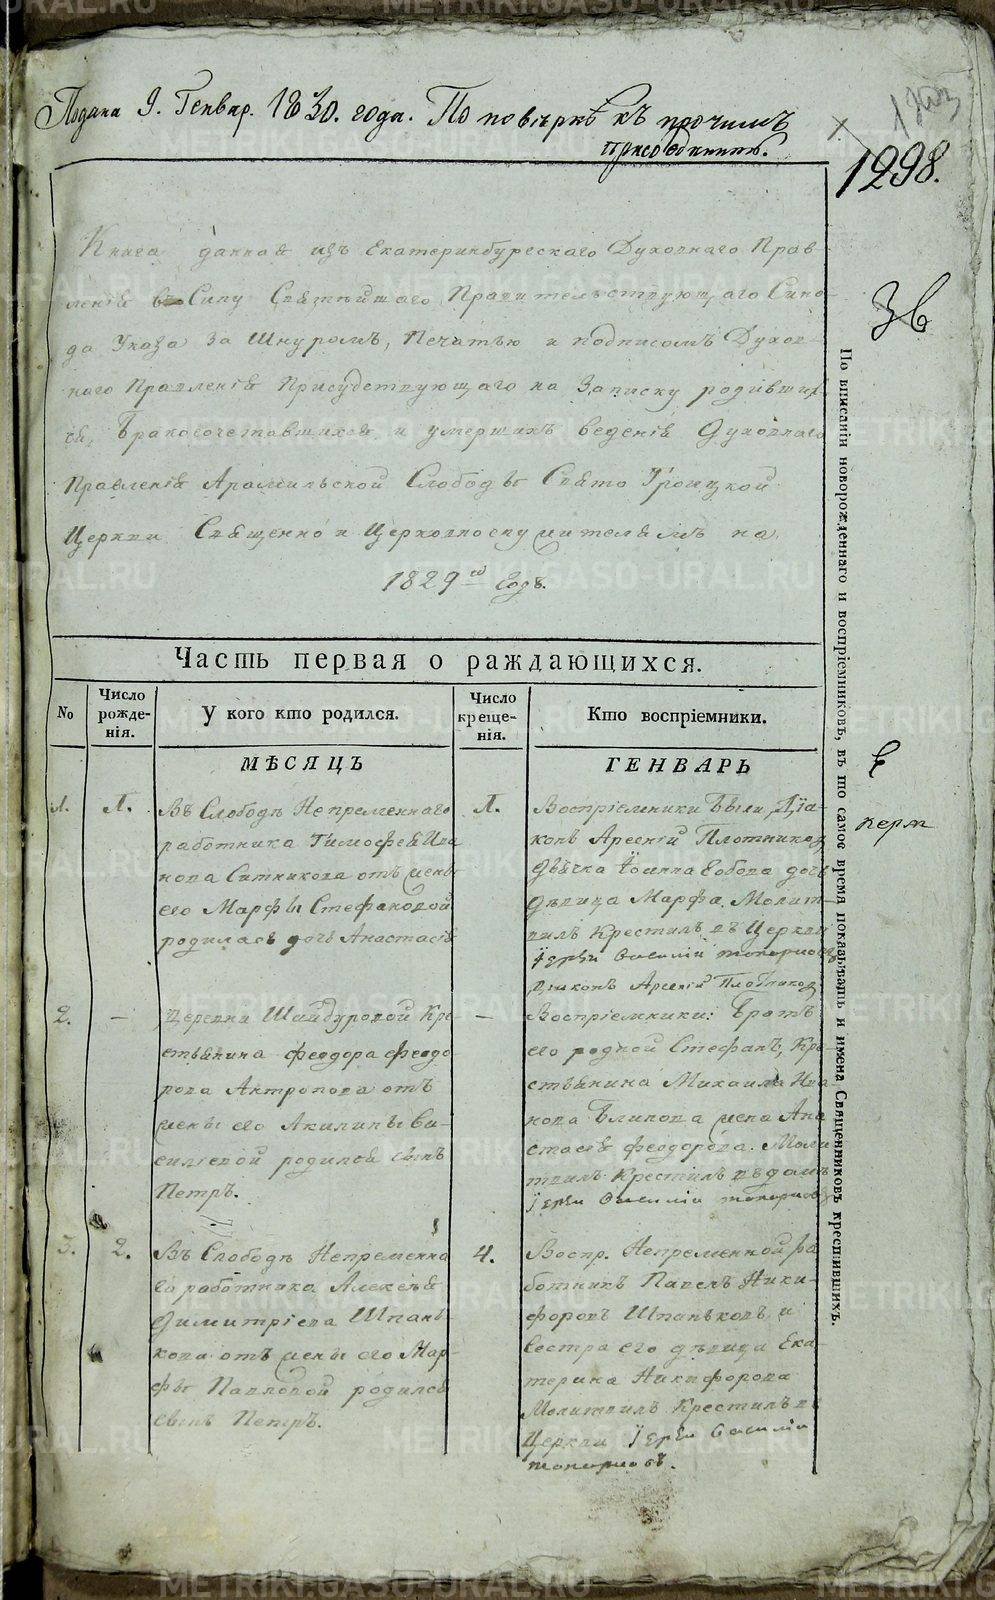 Подана 9. Генвар. 1830. года. По повѣркѣ къ прочимъ
присоединить.
1298.
Книга данная изъ Екатеринбургскаго Духовнаго Прав-
ленія въ Силу Святѣйшаго Правительствующаго Сино-
да Указа за Шнуромъ, Печатью и подписомъ Духов-
наго Правленія Присудствующаго на Записку родивших
ся, Бракосочетавшихся и умершихъ веденія Духовнаго
Правленія Арамильской Слободы Свято Троицкой
Церкви Священно и Церковнослужителямъ на
1829й Годъ.
Часть первая о раждающихся.
No
Число рожде-нія.
У кого кто родился.
Число креще-нія.
Кто воспріемники.
МѢСЯЦЪ
ГЕНВАРЬ
1.
1.
Въ Слободѣ Непременнаго
работника Тимофея Ива
нова Ситникова отъ жены
его Марфы Стефановой
родилась дочь Анастасія
1.
Воспріемники были, Діа-
конъ Арсеній Плотниковъ
Дьячка Іоанна Бобова дочь
дѣвица Марфа. Молит-
вилъ Крестилъ въ Церкви
Іерей Василій Топорковъ
Діаконъ Арсеній Плотников
2.
—
Деревни Шайдуровой Кре
стьянина Феодора Феодо
рова Антропова отъ
жены его Акилины Ва-
сильевой родился сынъ
Петръ.
—
Воспріемники: Братъ
его родной Стефанъ, Кре
стьянина Михаила Ива
нова Блинова жена Ана
стасія Феодорова. Моли
твилъ Крестилъ въ домѣ
Іерей Василій Топорков
3.
2.
Въ Слободѣ Непременна
го работника Алексѣя
Димитріева Шпань
кова отъ жены его Мар-
фы Павловой родился
сынъ Петръ.
4.
Воспр. Непременной ра
ботникъ Павелъ Ники-
форовъ Шпаньковъ и
Сестра его дѣвица Ека
терина Никифорова
Молитвилъ Крестилъ въ
Церкви Іерей Василій
Топорковъ.
По вписаніи новорожденнаго и воспріемниковъ, въ то самое время показывать и имена Священниковъ крестившихъ.
METRIKI.GASO-URAL.RU